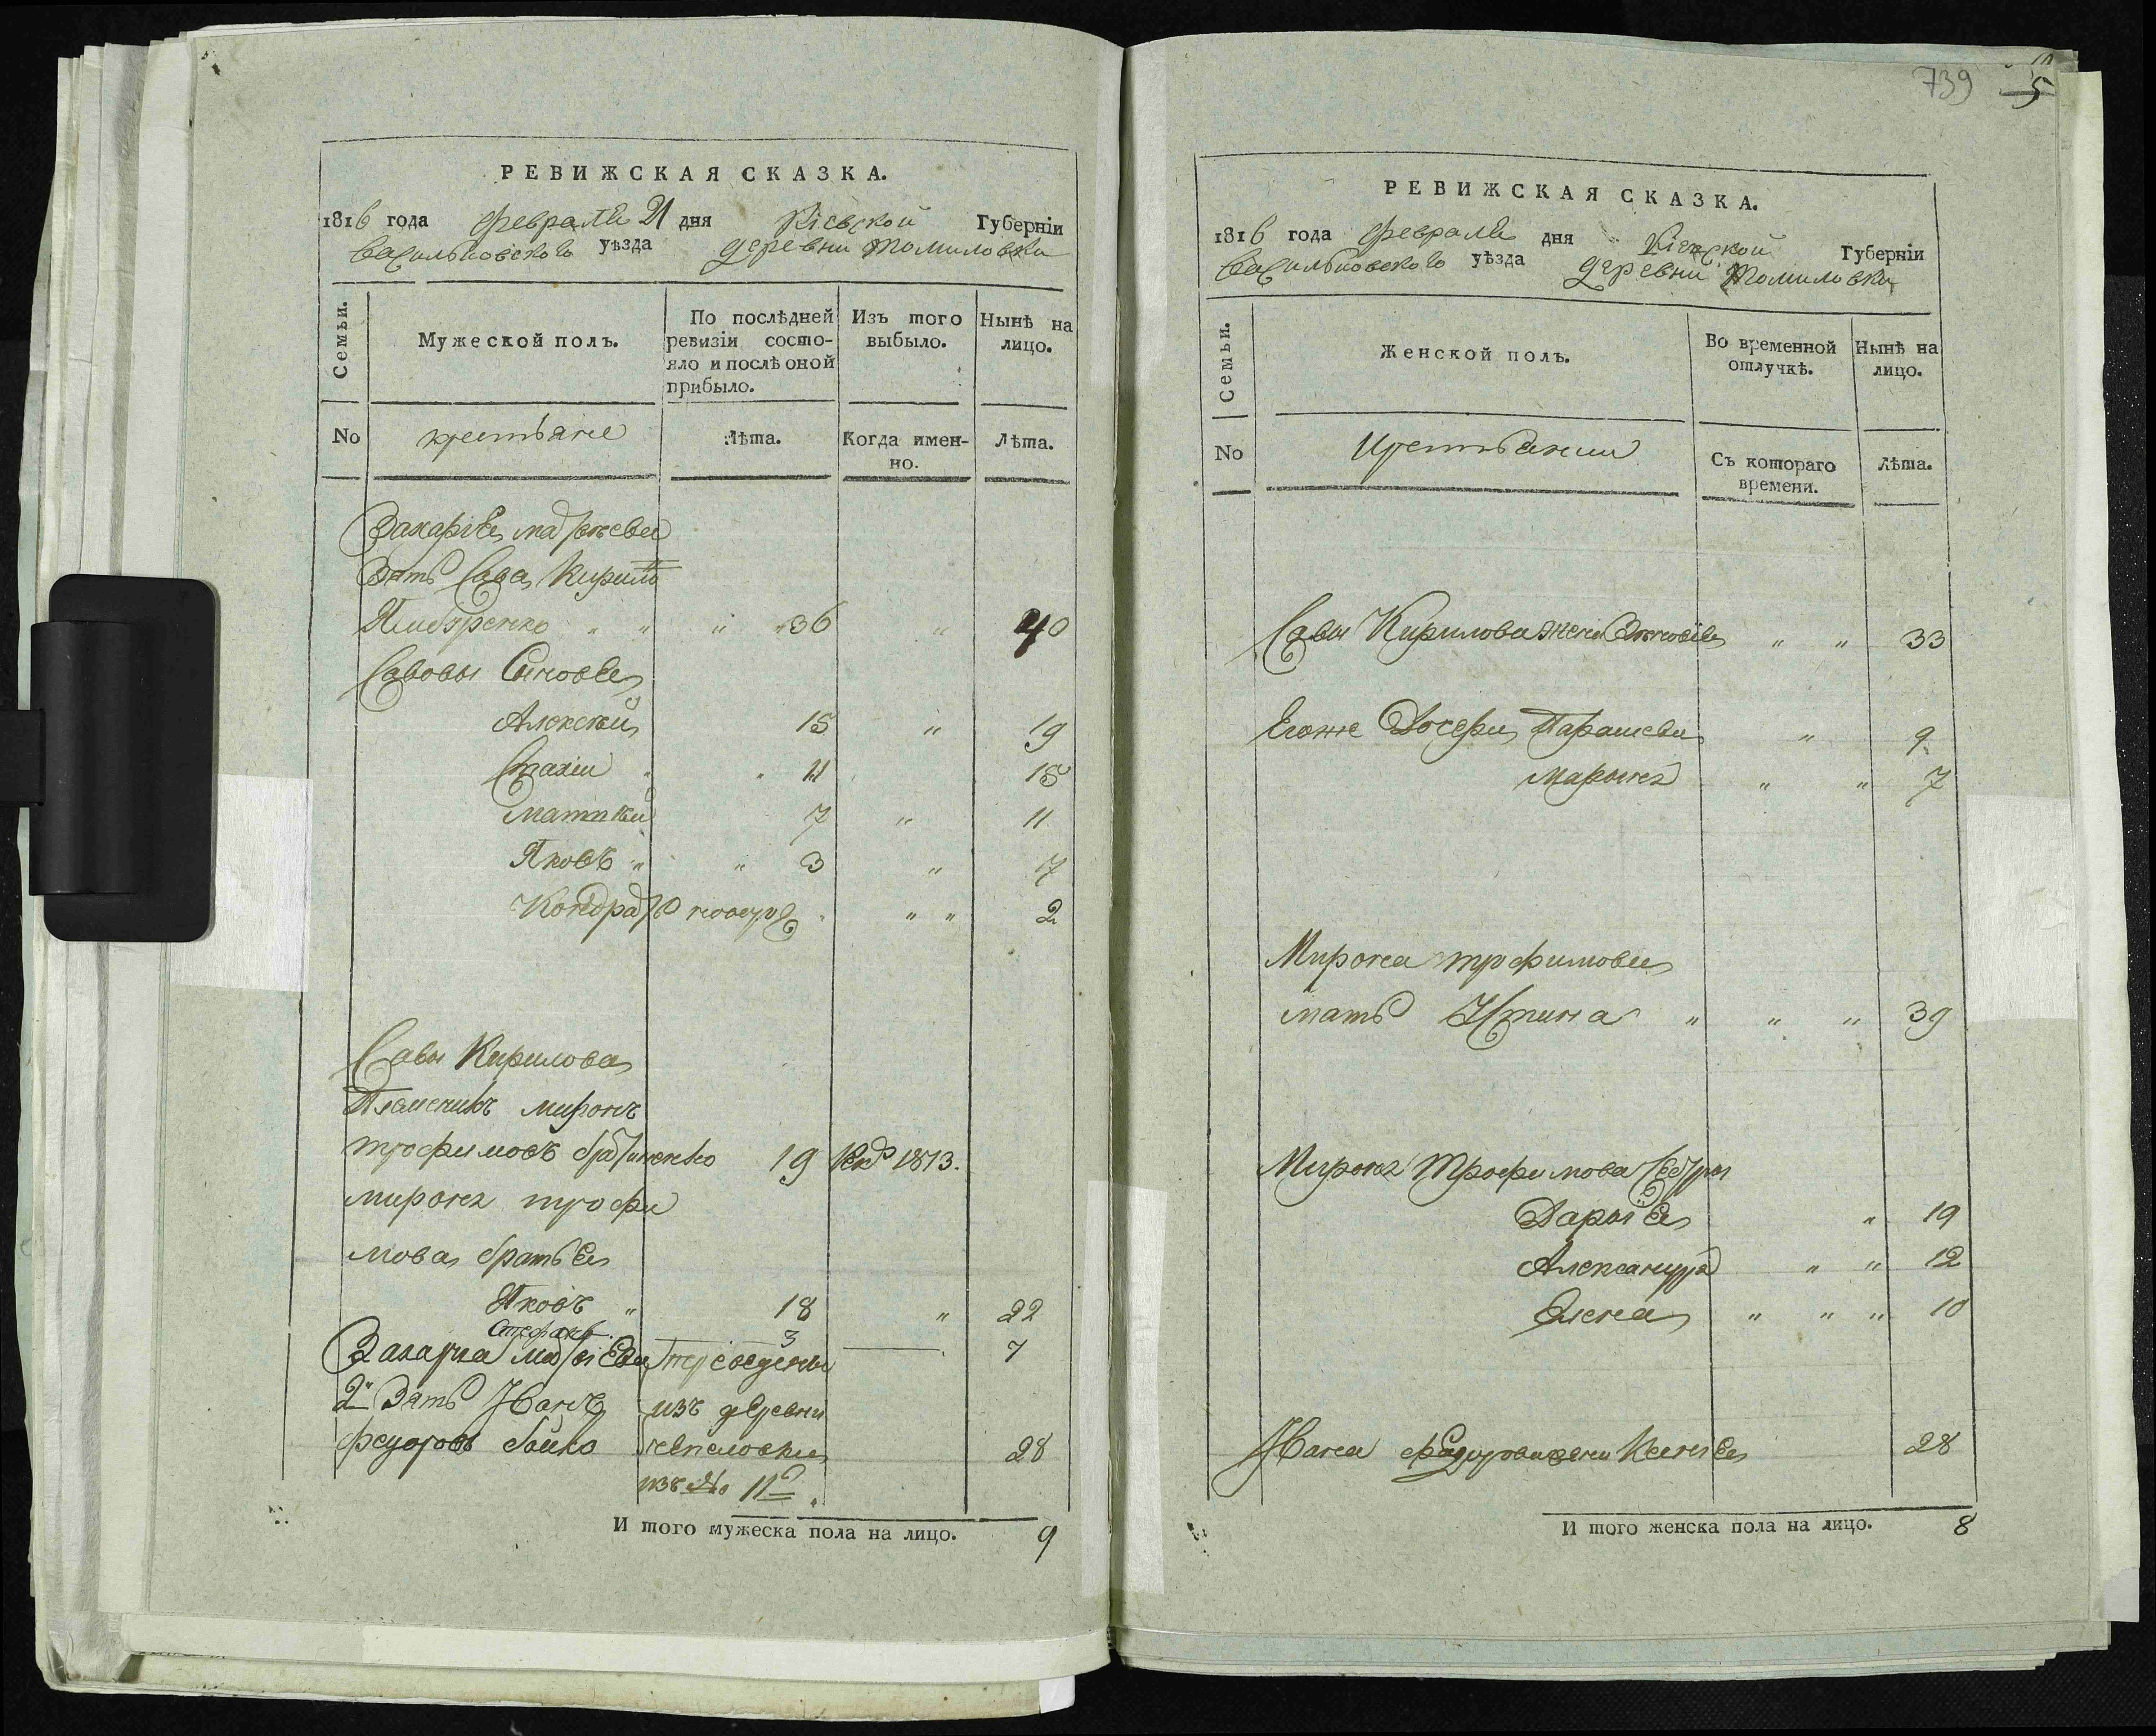 РЕВИЖСКАЯ СКАЗКА.
1816 года февраля 21 дня Кіевской Губерніи
Васильковского уѣзда деревни Томиловки
Семьи.
Мужеской полъ.
По послѣдней ревизіи состо-
яло и послѣ оной
прибыло.
Изъ того
выбыло.
Нынѣ на
лицо.
No крестьяне Лѣта. Когда имен-
но. Лѣта.
Захарія
Зять Сава Кирилъ
36 " 40
Савовы Сыновья
Алексѣй 15 " 19
11 15
Матвѣй 7 " 11
Яковъ " " 3 " 7
Кондратъ " " 2
Савы Кирилова
Племеникъ Миронъ
Трофимовъ 19 1813.
Мирона Трофи
мова братья
Яковъ " 18 " 22
Стефанъ 3 7
Захарія переведены
2й Зять Иванъ изъ деревни
Федоровъ бойко 28
изъ No 11
И того мужеска пола на лицо. 9
739 5
РЕВИЖСКАЯ СКАЗКА.
1816 года февраля дня Кіевской Губерніи
Васильковского уѣзда деревни Томиловки
Семьи.
Женской полъ.
Во временной
отлучкѣ.
Нынѣ на
лицо.
No Крестьянки Съ котораго
времени. Лѣта.
Савы Кирилова жена " " 33
Егоже Дочери Парашева " 9
" " 7
Мирона Трофимова
мать Устина " " " 39
Мирона Трофимова Сестры
Дарыя " 19
Александра " " 12
Олена " " " 10
Ивана 28
И того женска пола на лицо. 8